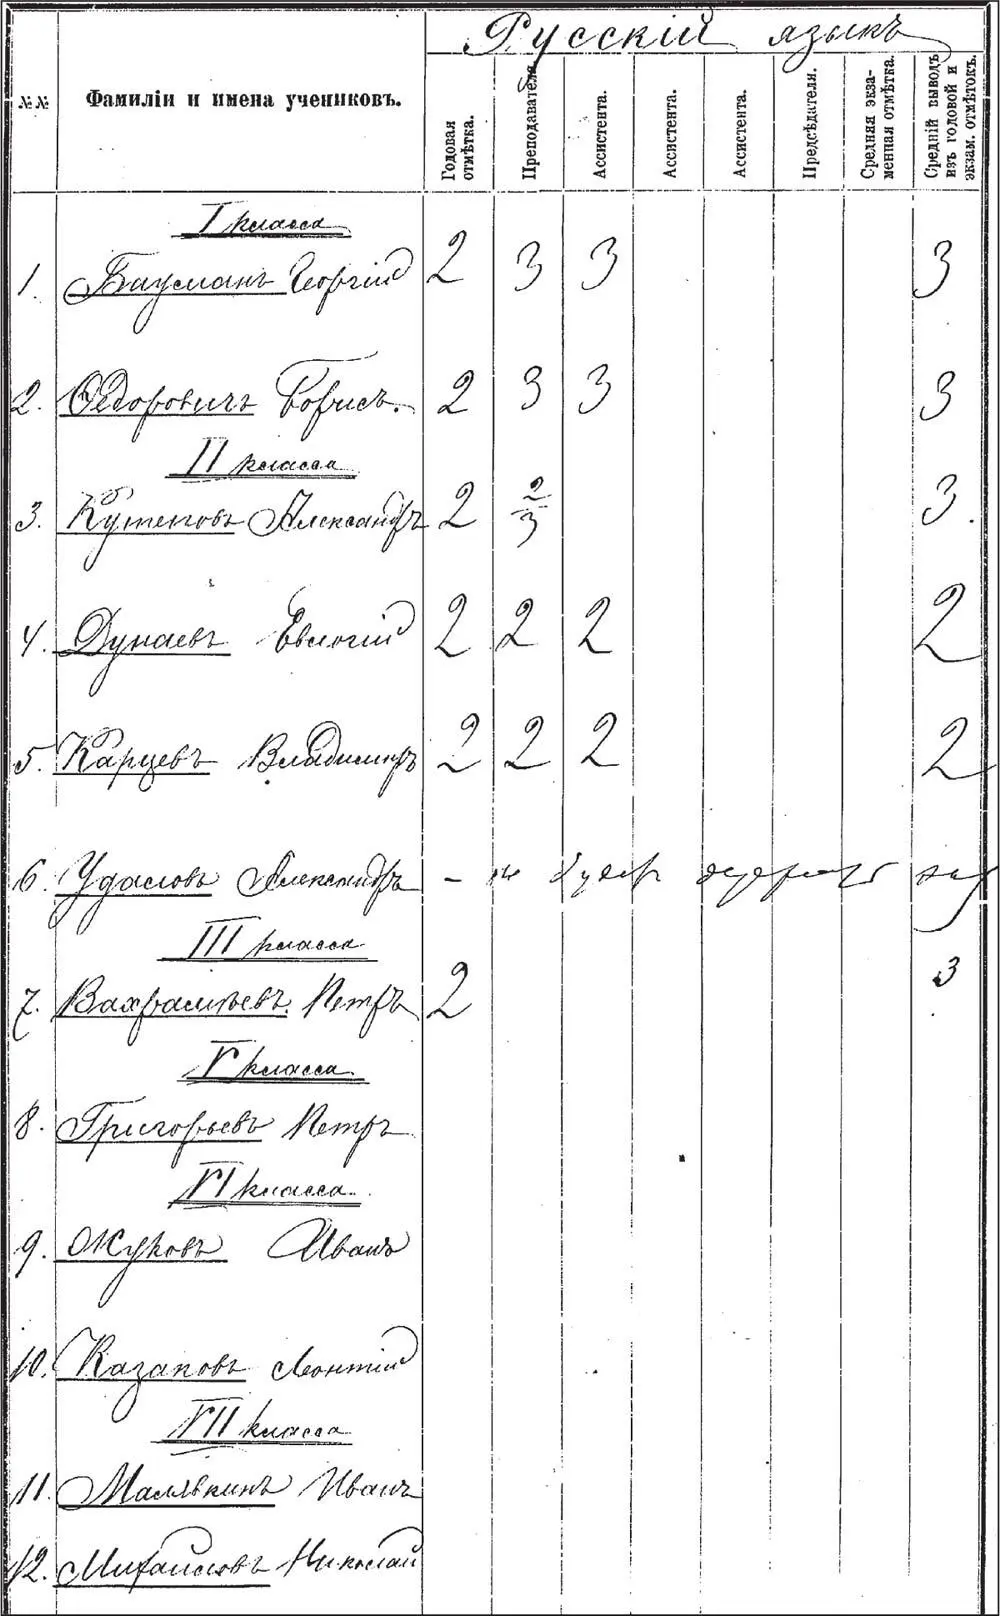 Русскій языкъ
№№ Фамиліи и имена учениковъ. Годовая отмѣтка. Преподавателя. Ассистента. Ассистента. Ассистента. Предсѣдателя. Средняя экза-менная отмѣтка. Средній выводъ изъ годовой и экзам. отмѣтокъ.
I класса
1. Бауманъ Георгій 2 3 3 3
2. Ѳедоровичъ Борисъ. 2 3 3 3
II класса
3. Кутеповъ Александръ 2 2/3 3.
4. Дунаевъ Евлогій 2 2 2 2
5. Карцевъ Владимиръ 2 2 2 2
6. Удаловъ Александръ -
III класса
7. Вахрамѣевъ Петръ 2 3
V класса
8. Григорьевъ Петръ
VI класса.
9. Жуковъ Иванъ
10. Казаковъ Леонтій
VII класса
11. Малявкинъ Иванъ
12. Михайловъ Николай